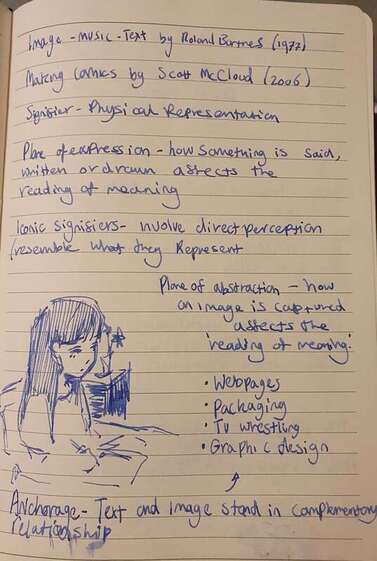 Image - Music - Text by Roland Barthes (1977)
Making Comics by Scott McCloud (2006)
Signifier - Physical Representation
Plane of expression - how something is said,
written or drawn affects the
reading of meaning
Iconic signifiers - involve direct perception
(resemble what they Represent
Plane of abstraction - how
an image is captured
affects the
'reading of meaning.'
• Webpages
• Packaging
• TV wrestling
• Graphic design
Anchorage - Text and image stand in complementory
relationship